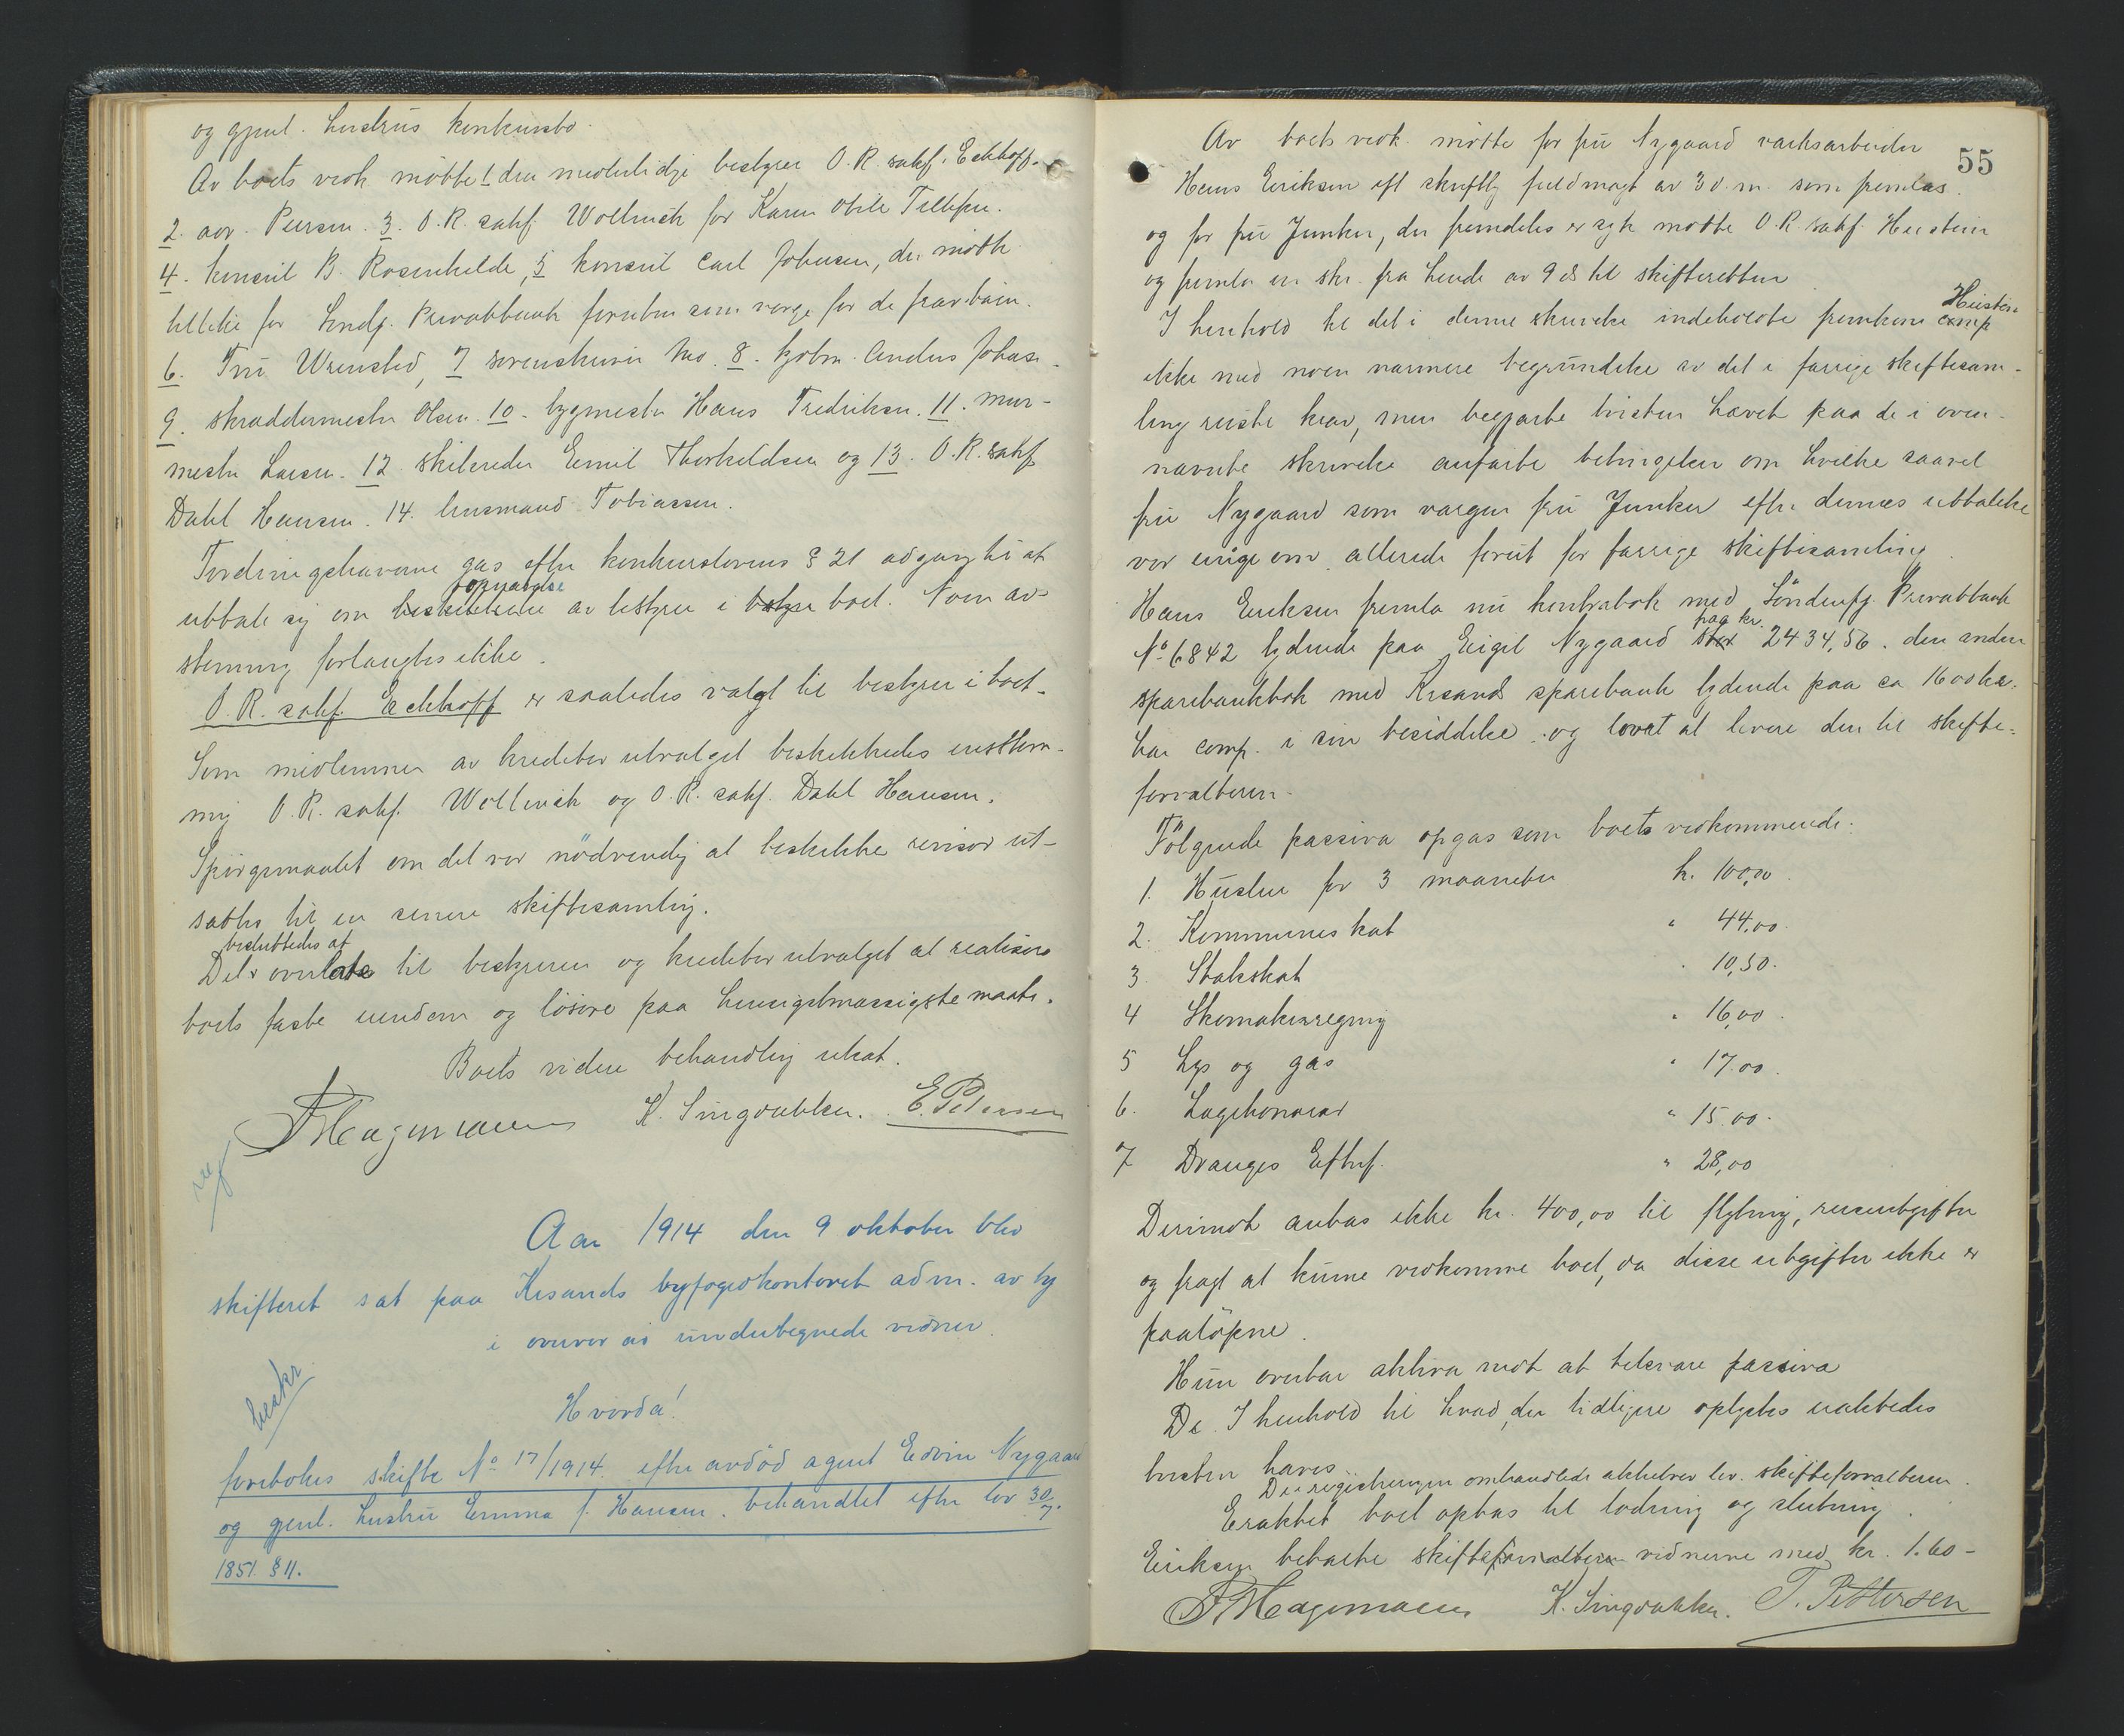 og gjenl. hustrus konkursbo.
Av boets vedk. møtte 1 den midlertidige bestyrer O.R. sakf. Eckhoff.
2. adv. Peersen. 3. O.R. sakf. Wollnick for Karen Otilie
4. konsul B. Rosenkilde, 5 konsul Carl Johnsen, der møtte
tillike for Privatbank foruten som verge for de barn.
6. Fru Wrensted, 7 sorenskriver 8. kjøbm. Anders Johns.
9. skræddermester Olsen. 10. bygmester Hans Fredriksen. 11. mur-
mester Larsen. 12 skibsreder Emil Thorkildsen og 13. O.R. sakf.
Dahl Hansen. 14. husmand Tobiassen.
Fordringshaverne gas efter konkurslovens § 21 adgang til at
uttale sig om opnævnelse av bestyrer i boet. Noen av-
stemning forlangtes ikke.
O.R. sakf. Eckhoff er saaledes valgt til bestyrer i boet.
Som medlemmer av kreditorutvalget beskikkedes enstem-
mig O.R. sakf. Wollnick og O.R. sakf. Dahl Hansen.
Spørgsmaalet om det var nødvendig at beskikke revisor ut-
sattes til en senere skiftesamling.
besluttedes at
Det overlate til bestyreren og kreditorutvalget at realisere
boets faste eiendom og løsøre paa hensigtsmæssigste maate.
Boets videre behandling utsat.
Hagemann K. Singdahlsen. E. Petersen
reg
Aar 1914 den 9 oktober blev
skifteret sat paa Krsands byfogedkontoret adm. av by
i overvær av undertegnede vidner.
Hvorda!
beskr.
foretokes skifte No 17/1914 efter avdød agent Edvin Nygaard
og gjenl. hustru Emma f. Hansen. behandlet efter lov 30/7.
1851 § 11.
55
Av boets vedk. møtte for fru Nygaard verksarbeider
Hans Eriksen eft skriftlig fuldmagt av 30 m. som fremlas.
og for fru Junker, der fremdeles er syk møtte O.R. sakf. Heistein
og fremla en skr. fra hende av 9 ds til skifteretten
Heistein
I henhold til det i denne skrivelse indeholdte fremkom comp
ikke med noen nærmere begrundelse av det i forrige skiftesam-
ling reiste krav, men begjærte tvisten hævet paa de i oven-
nævnte skrivelse anførte betingelser om hvilke saavel
fru Nygaard som vergen fru Junker efter dennes uttalelse
var enige om allerede forut for forrige skiftesamling.
Hans Eriksen fremla nu kontrabok med Søndenfj. Privatbank
No 6842 lydende paa Eigil Nygaard paa kr. 2434,56. den anden
sparebankbok med Krsands sparebank lydende paa ca 1600 kr.
har comp. i sin besiddelse og lovet at levere den til skifte-
forvalteren.
Følgende passiva opgas som boets vedkommende:
1. Husleie for 3 maaneter kr. 100,00.
2. Kommuneskat " 44,00.
3 Statsskat " 10,50.
4 Skomakerregning " 16,00.
5 Lys og gas " 17.00.
6. Lægehonorar " 15.00.
7 Dranges Efterf. " 28,00
Derimot antas ikke kr. 400,00 til flytning, reiseutgifter
og fragt at kunne vedkomme boet, da disse utgifter ikke er
paaløpne.
Hun overtar aktiva mot at tilsvare passiva
De. I henhold til hvad der tidligere oplystes eraktedes
tvisten hævet.
De i registreringen omhandlede aktstykker lev. skifteforvalteren
Eraktet boet optas til lodning og slutning.
Eriksen betalte skifteforvalteren vidnerne med kr. 1.60-
Hagemann K. Singdahlsen. T. Pettersen